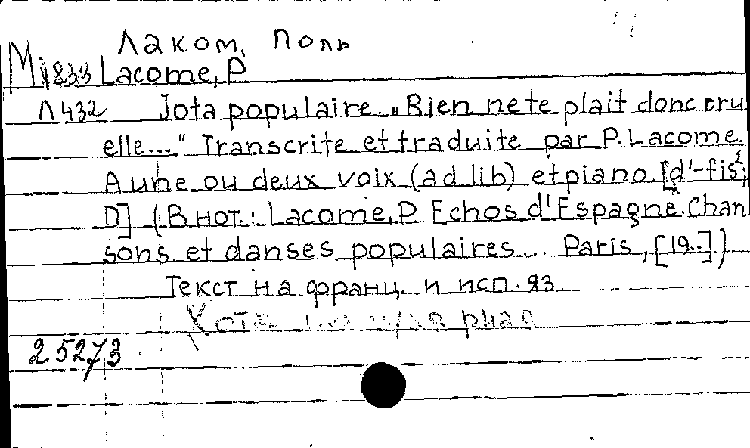 Лаком, Поль
Lacome, P
Л432 Jota populaire. „Rien ne te plait donc cru
elle..." Transcrite et traduite par P. Lacome.
A une ou deux voix (ad lib) et piano. [d'-fis²;
D] (В нот.: Lacome, P. Echos d'Espagne. Chan
sons et danses populaires... Paris, [19..].)
Текст на франц. и исп. яз.
25273